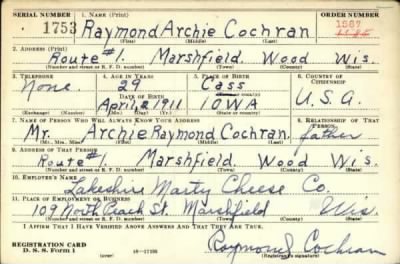 SERIAL NUMBER
1. NAME (Print)
ORDER NUMBER
1753
Raymond Archie Cochran
1587
(First) (Middle) (Last)
2. ADDRESS (Print)
Route #1. Marshfield. Wood Wis.
(Number and street or R. F. D. number) (Town) (County) (State)
3. TELEPHONE
4. AGE IN YEARS
5. PLACE OF BIRTH
6. COUNTRY OF CITIZENSHIP
None.
29
Cass
DATE OF BIRTH
(Town or county)
April 2 1911
IOWA
U.S.A.
(Exchange) (Number)
(Mo.) (Day) (Yr.)
(State or country)
7. NAME OF PERSON WHO WILL ALWAYS KNOW YOUR ADDRESS
8. RELATIONSHIP OF THAT PERSON
Mr. Archie Raymond Cochran. father
(Mr., Mrs., Miss) (First) (Middle) (Last)
9. ADDRESS OF THAT PERSON
Route #1. Marshfield Wood Wis.
(Number and street or R. F. D. number) (Town) (County) (State)
10. EMPLOYER'S NAME
Lakeshire Marty Cheese Co.
11. PLACE OF EMPLOYMENT OR BUSINESS
109 North Peach St. Marshfield Wis.
(Number and street or R. F. D. number) (Town) (County) (State)
I AFFIRM THAT I HAVE VERIFIED ABOVE ANSWERS AND THAT THEY ARE TRUE.
REGISTRATION CARD
D. S. S. Form 1
(over)
16-17105
Raymond Cochran
(Registrant's signature)